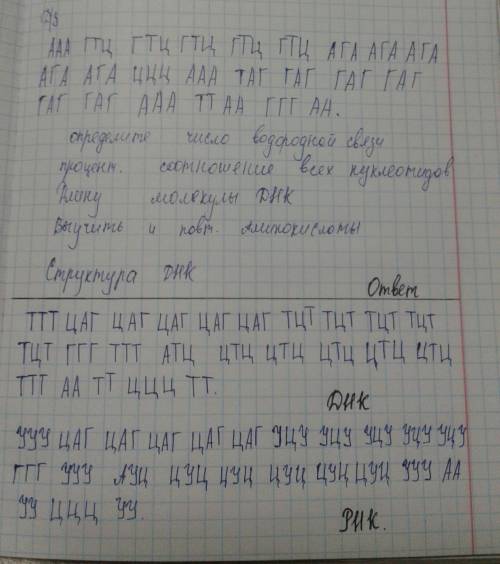 ААА ГТЦ ГТЦ ГТЦ ГТЦ ГТЦ АГА АГА АГА
АГА АГА ЦЦЦ ААА ТАГ ГАГ ГАГ ГАГ
ГАГ ГАГ ААА ТТ АА ГГГ АА.
определите число водородной связи
процент. соотношение всех нуклеотидов
Длину молекулы ДНК
Выучить и повт. Аминокислоты
Структура ДНК
Ответ
ТТТ ЦАГ ЦАГ ЦАГ ЦАГ ЦАГ ТЦТ ТЦТ ТЦТ ТЦТ
ТЦТ ГГГ ТТТ АТЦ ЦТЦ ЦТЦ ЦТЦ ЦТЦ ЦТЦ
ТТТ АА ТТ ЦЦЦ ТТ.
ДНК
УУУ ЦАГ ЦАГ ЦАГ ЦАГ ЦАГ УЦУ УЦУ УЦУ УЦУ УЦУ
ГГГ УУУ АУЦ ЦУЦ ЦУЦ ЦУЦ ЦУЦ ЦУЦ УУУ АА
УУ ЦЦЦ УУ.
РНК.